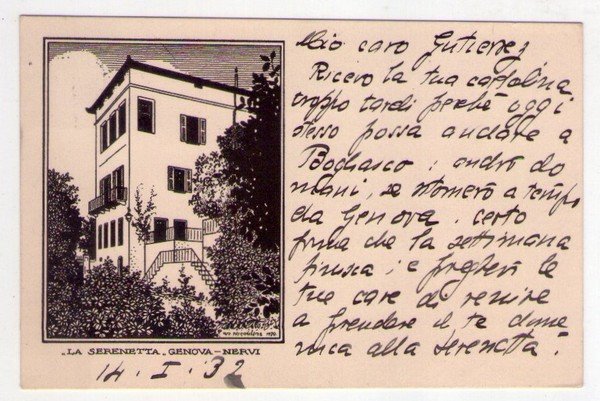 Mio caro Gutierrez
Ricevo la tua cartolina
troppo tardi perchè oggi
stesso possa andare a
Bogliasco: andrò do
mani, se tornerò a tempo
da Genova. certo
prima che la settimana
finisca; e pregherò le
tue care di venire
a prendere il te dome
nica alla "Serenetta".
„LA SERENETTA„ GENOVA-NERVI
14. I. 32